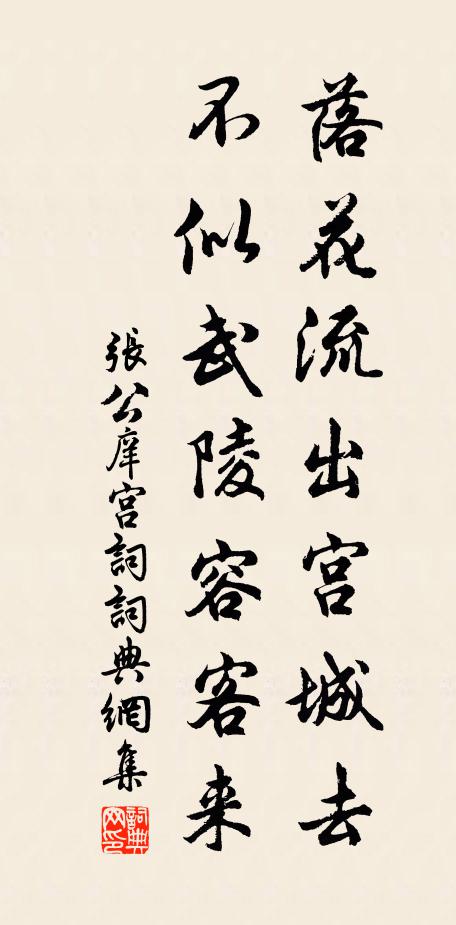 落花流出宫城去
不似武陵容客来
張公庠宫詞詞典網集
詞典网印